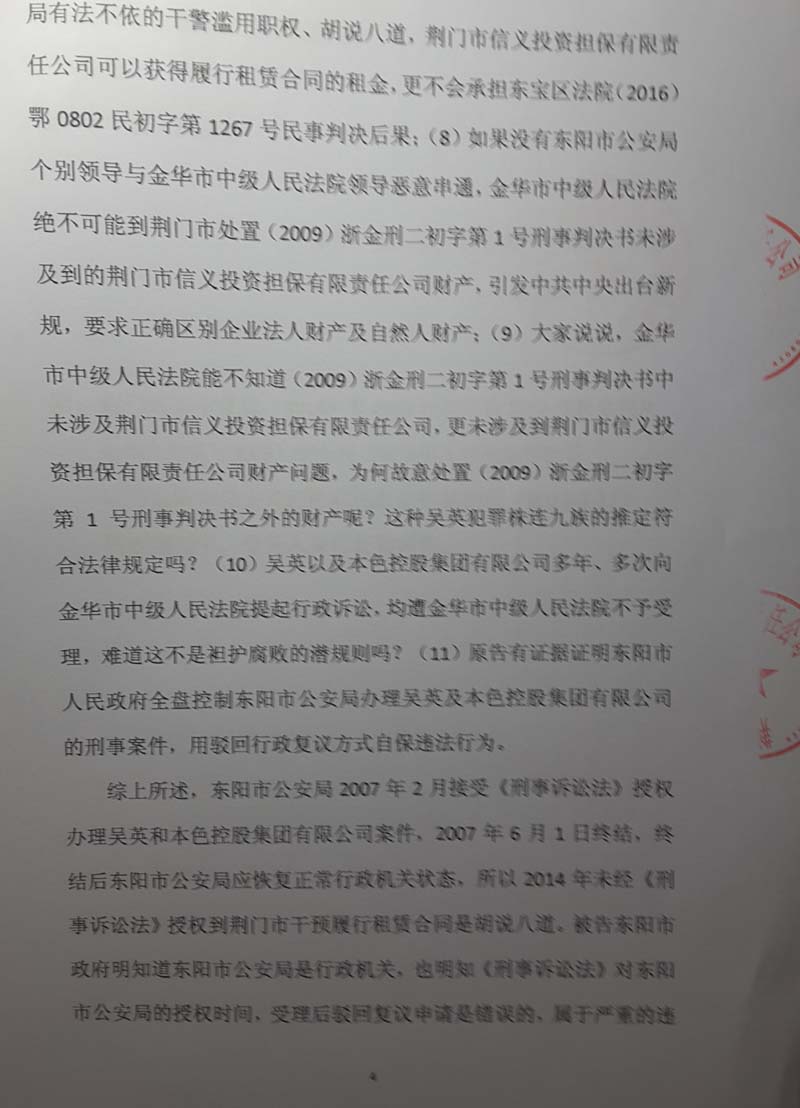 局有法不依的干警滥用职权、胡说八道，荆门市信义投资担保有限责
任公司可以获得履行租赁合同的租金，更不会承担东宝区法院（2016）
鄂 0802 民初字第 1267 号民事判决后果；（8）如果没有东阳市公安局
个别领导与金华市中级人民法院领导恶意串通，金华市中级人民法院
绝不可能到荆门市处置（2009）浙金刑二初字第 1 号刑事判决书未涉
及到的荆门市信义投资担保有限责任公司财产，引发中共中央出台新
规，要求正确区别企业法人财产及自然人财产；（9）大家说说，金华
市中级人民法院能不知道（2009）浙金刑二初字第 1 号刑事判决书中
未涉及荆门市信义投资担保有限责任公司，更未涉及到荆门市信义投
资担保有限责任公司财产问题，为何故意处置（2009）浙金刑二初字
第 1 号刑事判决书之外的财产呢？这种吴英犯罪株连九族的推定符
合法律规定吗？（10）吴英以及本色控股集团有限公司多年、多次向
金华市中级人民法院提起行政诉讼，均遭金华市中级人民法院不予受
理，难道这不是袒护腐败的潜规则吗？（11）原告有证据证明东阳市
人民政府全盘控制东阳市公安局办理吴英及本色控股集团有限公司
的刑事案件，用驳回行政复议方式自保违法行为。
综上所述，东阳市公安局 2007 年 2 月接受《刑事诉讼法》授权
办理吴英和本色控股集团有限公司案件，2007 年 6 月 1 日终结，终
结后东阳市公安局应恢复正常行政机关状态，所以 2014 年未经《刑
事诉讼法》授权到荆门市干预履行租赁合同是胡说八道。被告东阳市
政府明知道东阳市公安局是行政机关，也明知《刑事诉讼法》对东阳
市公安局的授权时间，受理后驳回复议申请是错误的，属于严重的违
4